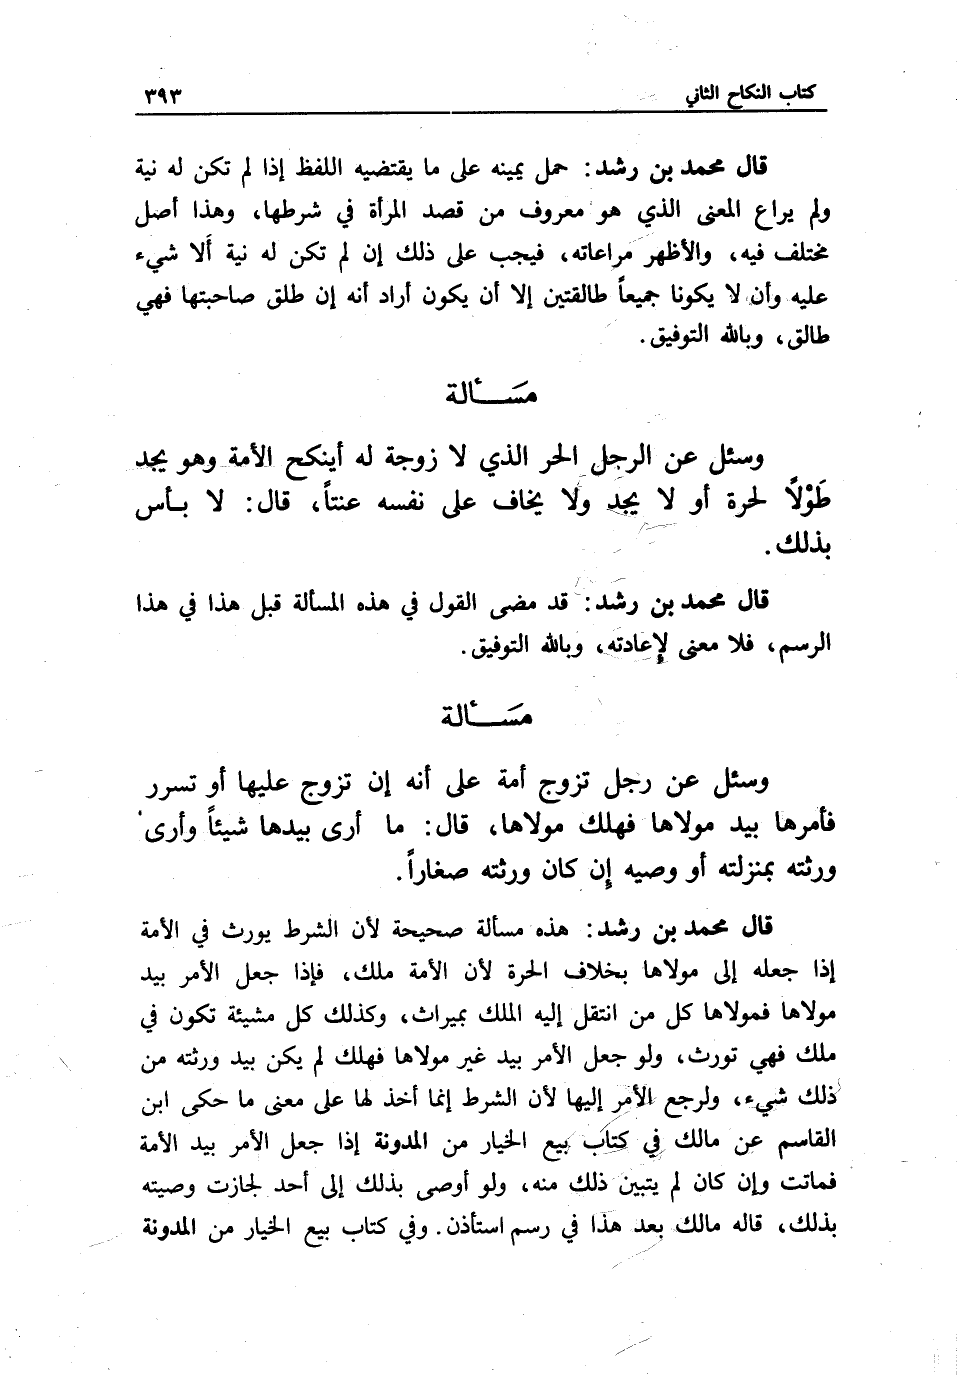 كتاب النكاح الثاني ٣٩٣
قال محمد بن رشد: حمل يمينه على ما يقتضيه اللفظ إذا لم تكن له نية
ولم يراع المعنى الذي هو معروف من قصد المرأة في شرطها، وهذا أصل
مختلف فيه، والأظهر مراعاته، فيجب على ذلك إن لم تكن له نية ألا شيء
عليه وأن لا يكونا جميعاً طالقتين إلا أن يكون أراد أنه إن طلق صاحبتها فهي
طالق، وبالله التوفيق.
مَسـألة
وسئل عن الرجل الحر الذي لا زوجة له أينكح الأمة وهو يجد
طَوْلاً لحرة أو لا يجد ولا يخاف على نفسه عنتاً، قال: لا بـأس
بذلك.
قال محمد بن رشد: قد مضى القول في هذه المسألة قبل هذا في هذا
الرسم، فلا معنى لإعادته، وبالله التوفيق.
مَسـألة
وسئل عن رجل تزوج أمة على أنه إن تزوج عليها أو تسرر
فأمرها بيد مولاها فهلك مولاها، قال: ما أرى بيدها شيئاً وأرى
ورثته بمنزلته أو وصيه إن كان ورثته صغاراً.
قال محمد بن رشد: هذه مسألة صحيحة لأن الشرط يورث في الأمة
إذا جعله إلى مولاها بخلاف الحرة لأن الأمة ملك، فإذا جعل الأمر بيد
مولاها فمولاها كل من انتقل إليه الملك بميراث، وكذلك كل مشيئة تكون في
ملك فهي تورث، ولو جعل الأمر بيد غير مولاها فهلك لم يكن بيد ورثته من
ذلك شيء، ولرجع الأمر إليها لأن الشرط إنما أخذ لها على معنى ما حكى ابن
القاسم عن مالك في كتاب بيع الخيار من المدونة إذا جعل الأمر بيد الأمة
فماتت وإن كان لم يتبين ذلك منه، ولو أوصى بذلك إلى أحد لجازت وصيته
بذلك، قاله مالك بعد هذا في رسم استأذن. وفي كتاب بيع الخيار من المدونة